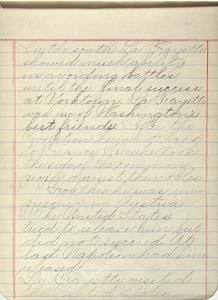 In the south La Fayette
showed much ability
in avoiding battles
until the final success
at Yorktown. La Fayette
was one of Washington's
best friends.
the side of the common
people against the nobles.
For this he was im-
prisoned in Austria.
The United States
tried to release him but
did not succeed. At
last Napoleon had him
released.
La Fayette visited
the United States